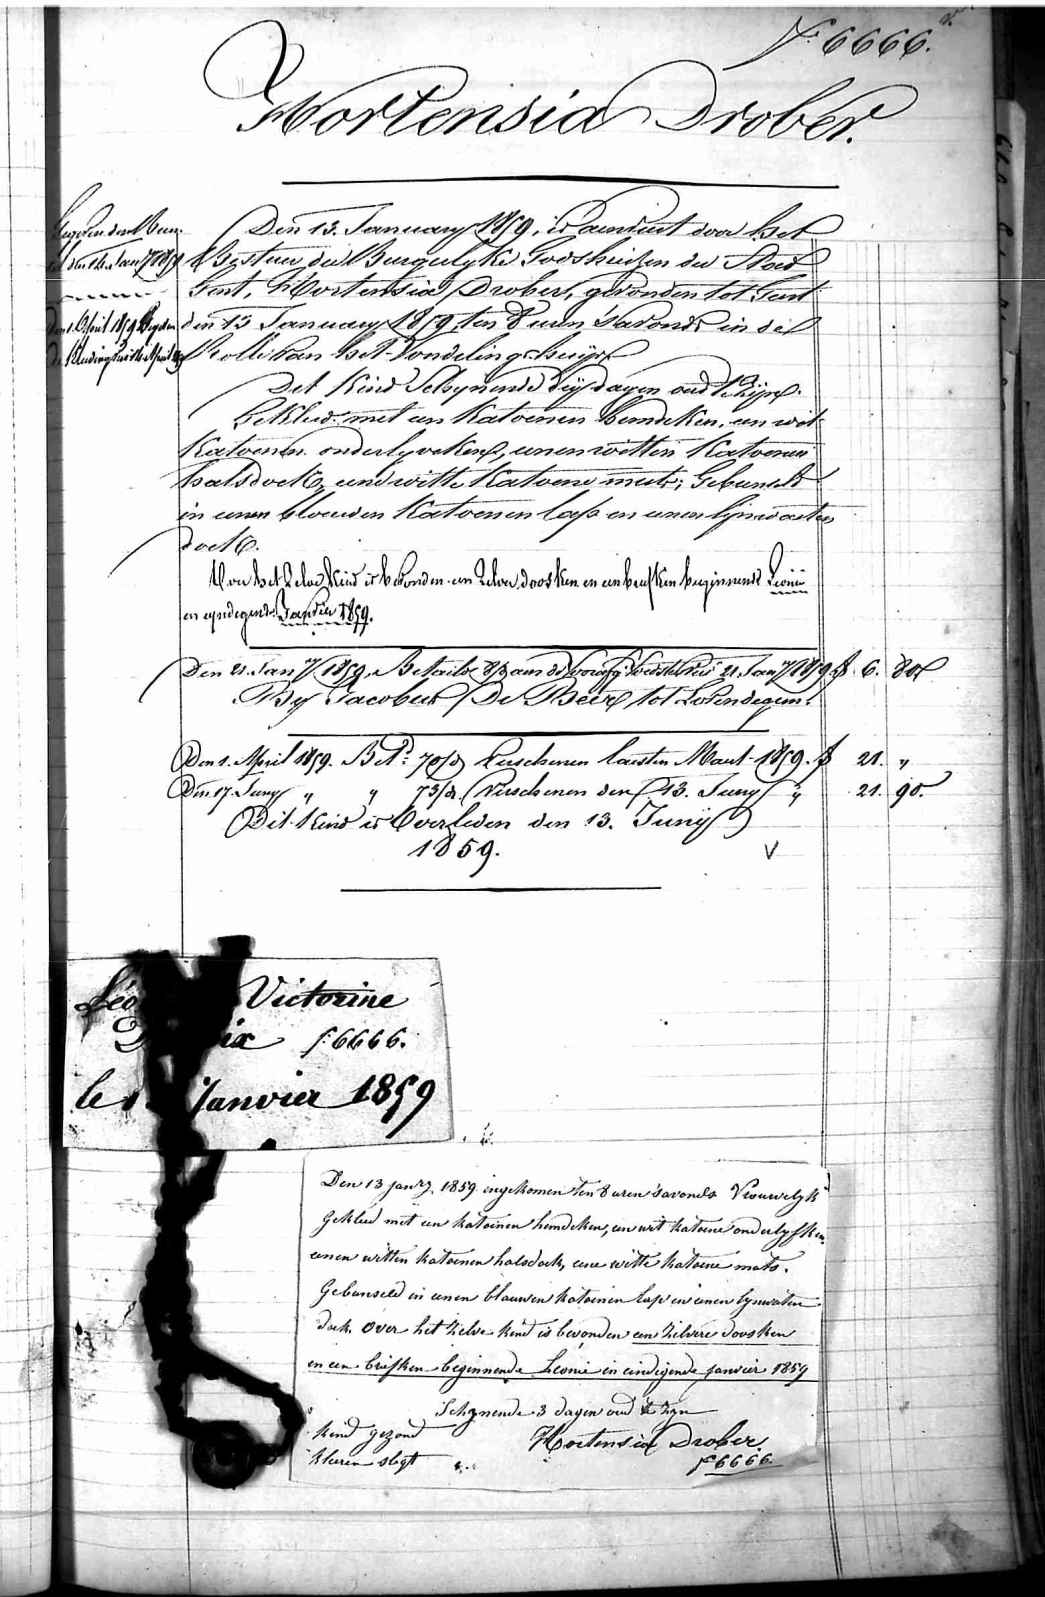 F. 6666.
Hortensia Drober.
Den 13. January 1859, is aenveert door het
Bestuur der Burgerlyke Godshuizen der Stad
Gent, Hortensia Drober, gevonden tot Gent
den 13 January 1859 ten 8 uren 's avonds in de
Rolle van het Vondelingshuys
Det Kind Schynende dry dagen oud te zyn.
Gekleed met een Katoenen hemdeken, een wit
Katoenen onderlyveken, eenen witten Katoenen
halsdoek, eene witte Katoene muts; Gebunseld
in eenen blauwen Katoenen lap en eenen lynwaeten
doek.
Over het zelve Kind is bevonden een zelver doosken en een briefken beginnende Léonie
en eyndegende Janvier 1859.
Den 21. Jany 1859, Betaeld 8/d aen de 21 Jany 1859 f 6. 80
By Jacobus De Beer tot Lovendegem.
Den 1. April 1859. Betd. 70/d Verschenen laesten Maert 1859. f 21. "
Den 17. Juny " " 73/d Verschenen den 13. Juny " 21. 90.
Dit Kind is Overleden den 13. Juny
1859.
V
Victorine
f. 6666.
le Janvier 1859
Den 13 Jany. 1859 ingekomen ten 8 uren 's avonds Vrouwelyk
Gekleed met een katoenen hemdeken, een wit katoene onderlyfken
eenen witten katoenen halsdoek, eene witte katoene mats.
Gebunseld in eenen blauwen katoenen lap en eenen lynwaten
doek. Over het zelve kind is bevonden een zilvere doosken
en een briefken beginnende Léonie en eindigende janvier 1859
Schynende 3 dagen oud te zyn
kind gezond
Hortensia Drober.
kleeren slegt
F 6666.